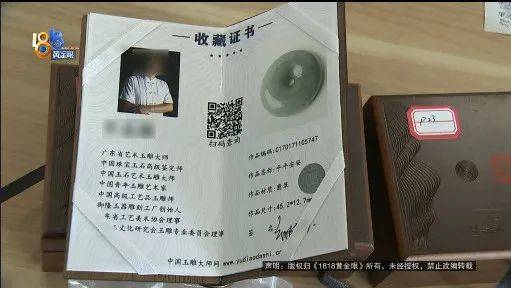 1818
黄金眼
收藏证书
★★★★★
扫码查询
广东省艺术玉雕大师
中国珠宝玉石高级鉴定师
中国玉石艺术玉雕大师
中国青年玉雕艺术家
中国高级工艺品玉雕师
御隆玉器雕刻工厂创始人
东省工艺美术协会理事
文化研究会玉雕专业委员会理事
中国玉雕大师网 www.yudiaodashi.c
作品编码:0170171105747
作品名称:平平安安
作品材质:翡翠
作品尺寸:45.2*12.7m
签名:
P23
声明:版权归《1818黄金眼》所有,未经授权,禁止改编转载